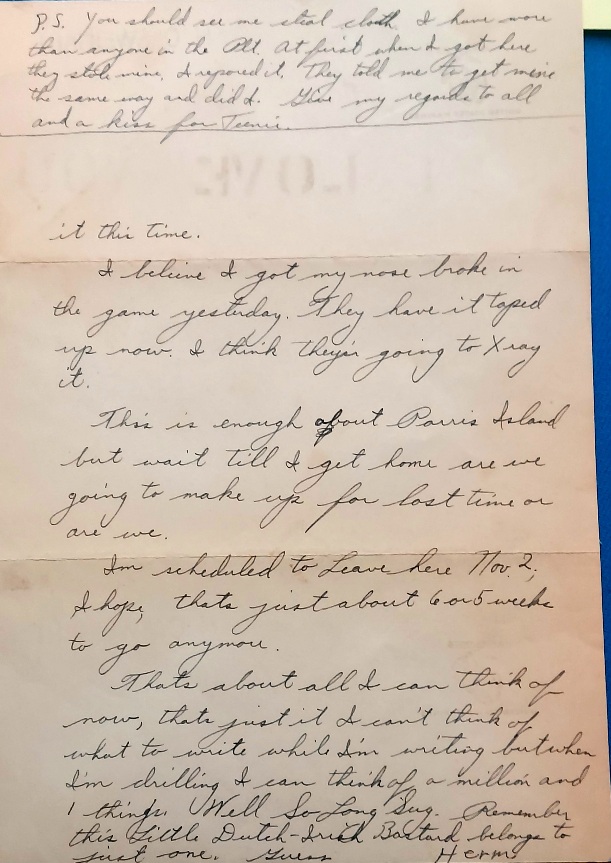 P.S. You should see me steal cloth. I have more
than anyone in the Plt. At first when I got here
they stole mine, I repored it. They told me to get mine
the same way and did I. Give my regards to all
and a kiss for Teenie.
LOVE
it this time.
I beleive I got my nose broke in
the game yesterday. They have it taped
up now. I think they're going to Xray
it.
This is enough about Parris Island
but wait till I get home are we
going to make up for lost time or
are we.
Im scheduled to Leave here Nov. 2,
I hope, thats just about 6 or 5 weeks
to go anymore.
Thats about all I can think of
now, thats just it I can't think of
what to write while I'm writing but when
I'm drilling I can think of a million and
1 things. Well So Long Sug. Remember
this Little Dutch-Irish Bastard belongs to
just one. Guess Herm